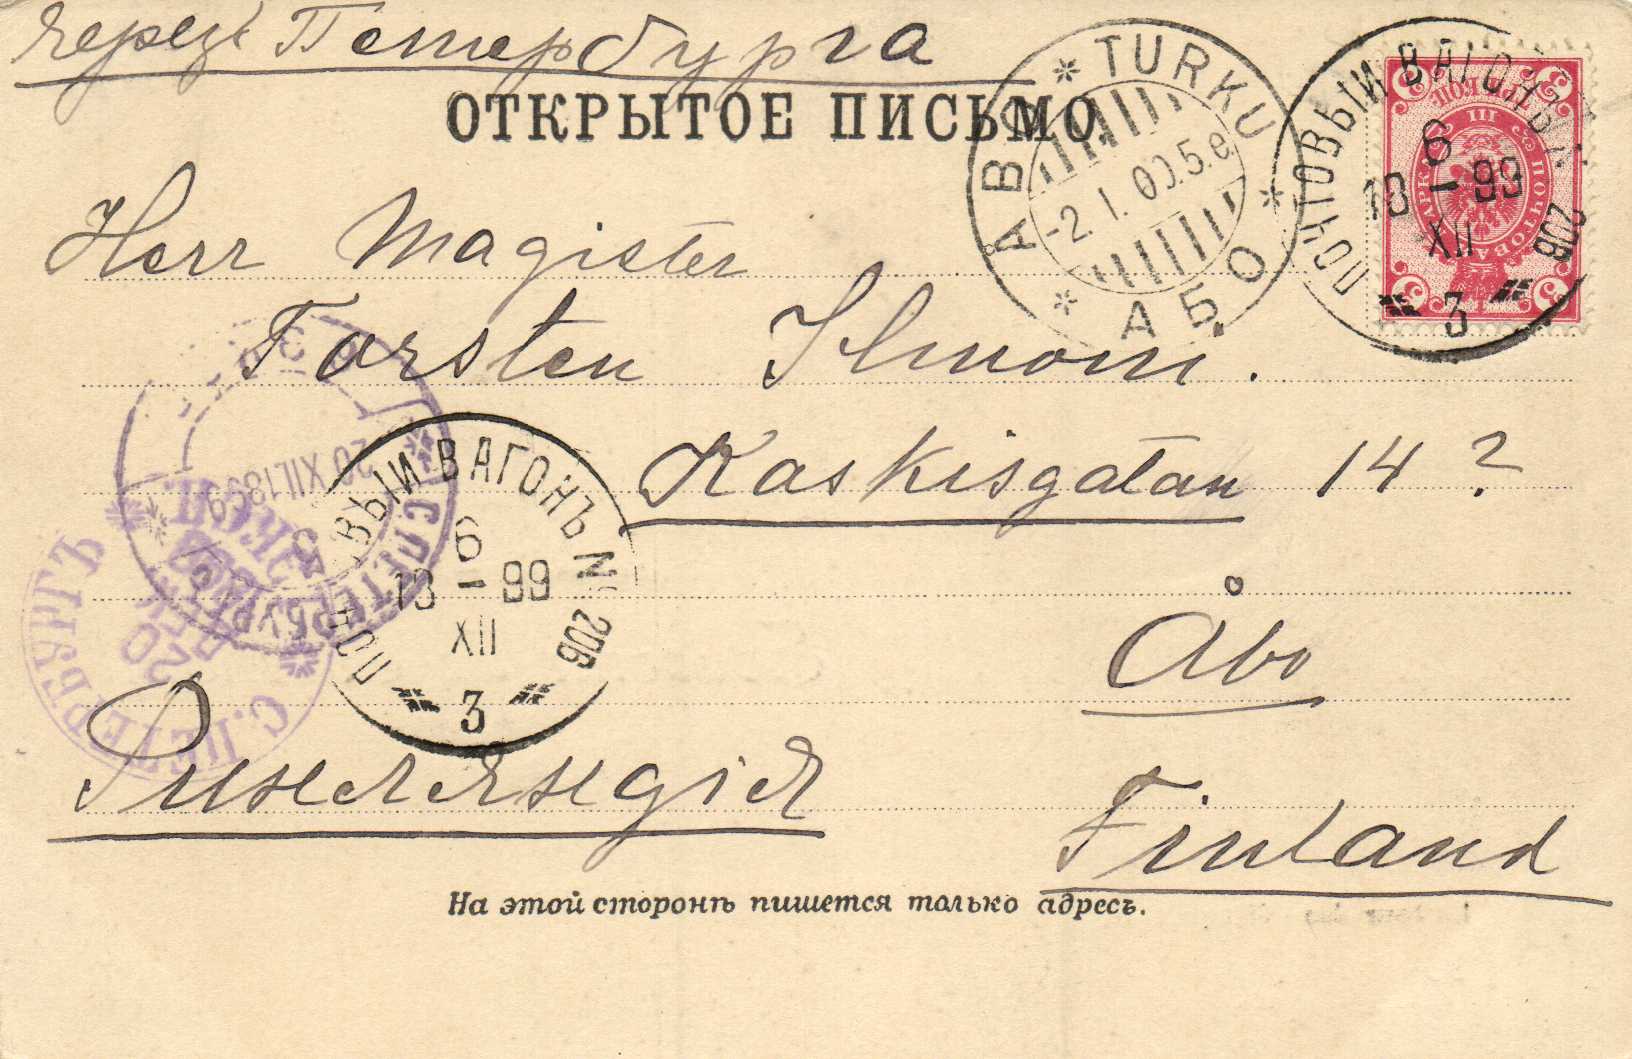 черезъ Петербурга
ОТКРЫТОЕ ПИСЬМО.
ÅBO * TURKU * АБО *
-2.I.00.5.e.
ПОЧТОВЫЙ ВАГОНЪ № 206
6
18 - 99
XII
3
Herr Magister
Torsten Ilmoni.
Kaskisgatan 14?
Åbo
Финляндія
Finland
С.ПЕТЕРБУРГЪ
20 XII.1899
3
ПОЧТОВЫЙ ВАГОНЪ № 206
6
18 - 99
XII
3
С.ПЕТЕРБУРГЪ
20
На этой сторонѣ пишется только адресъ.